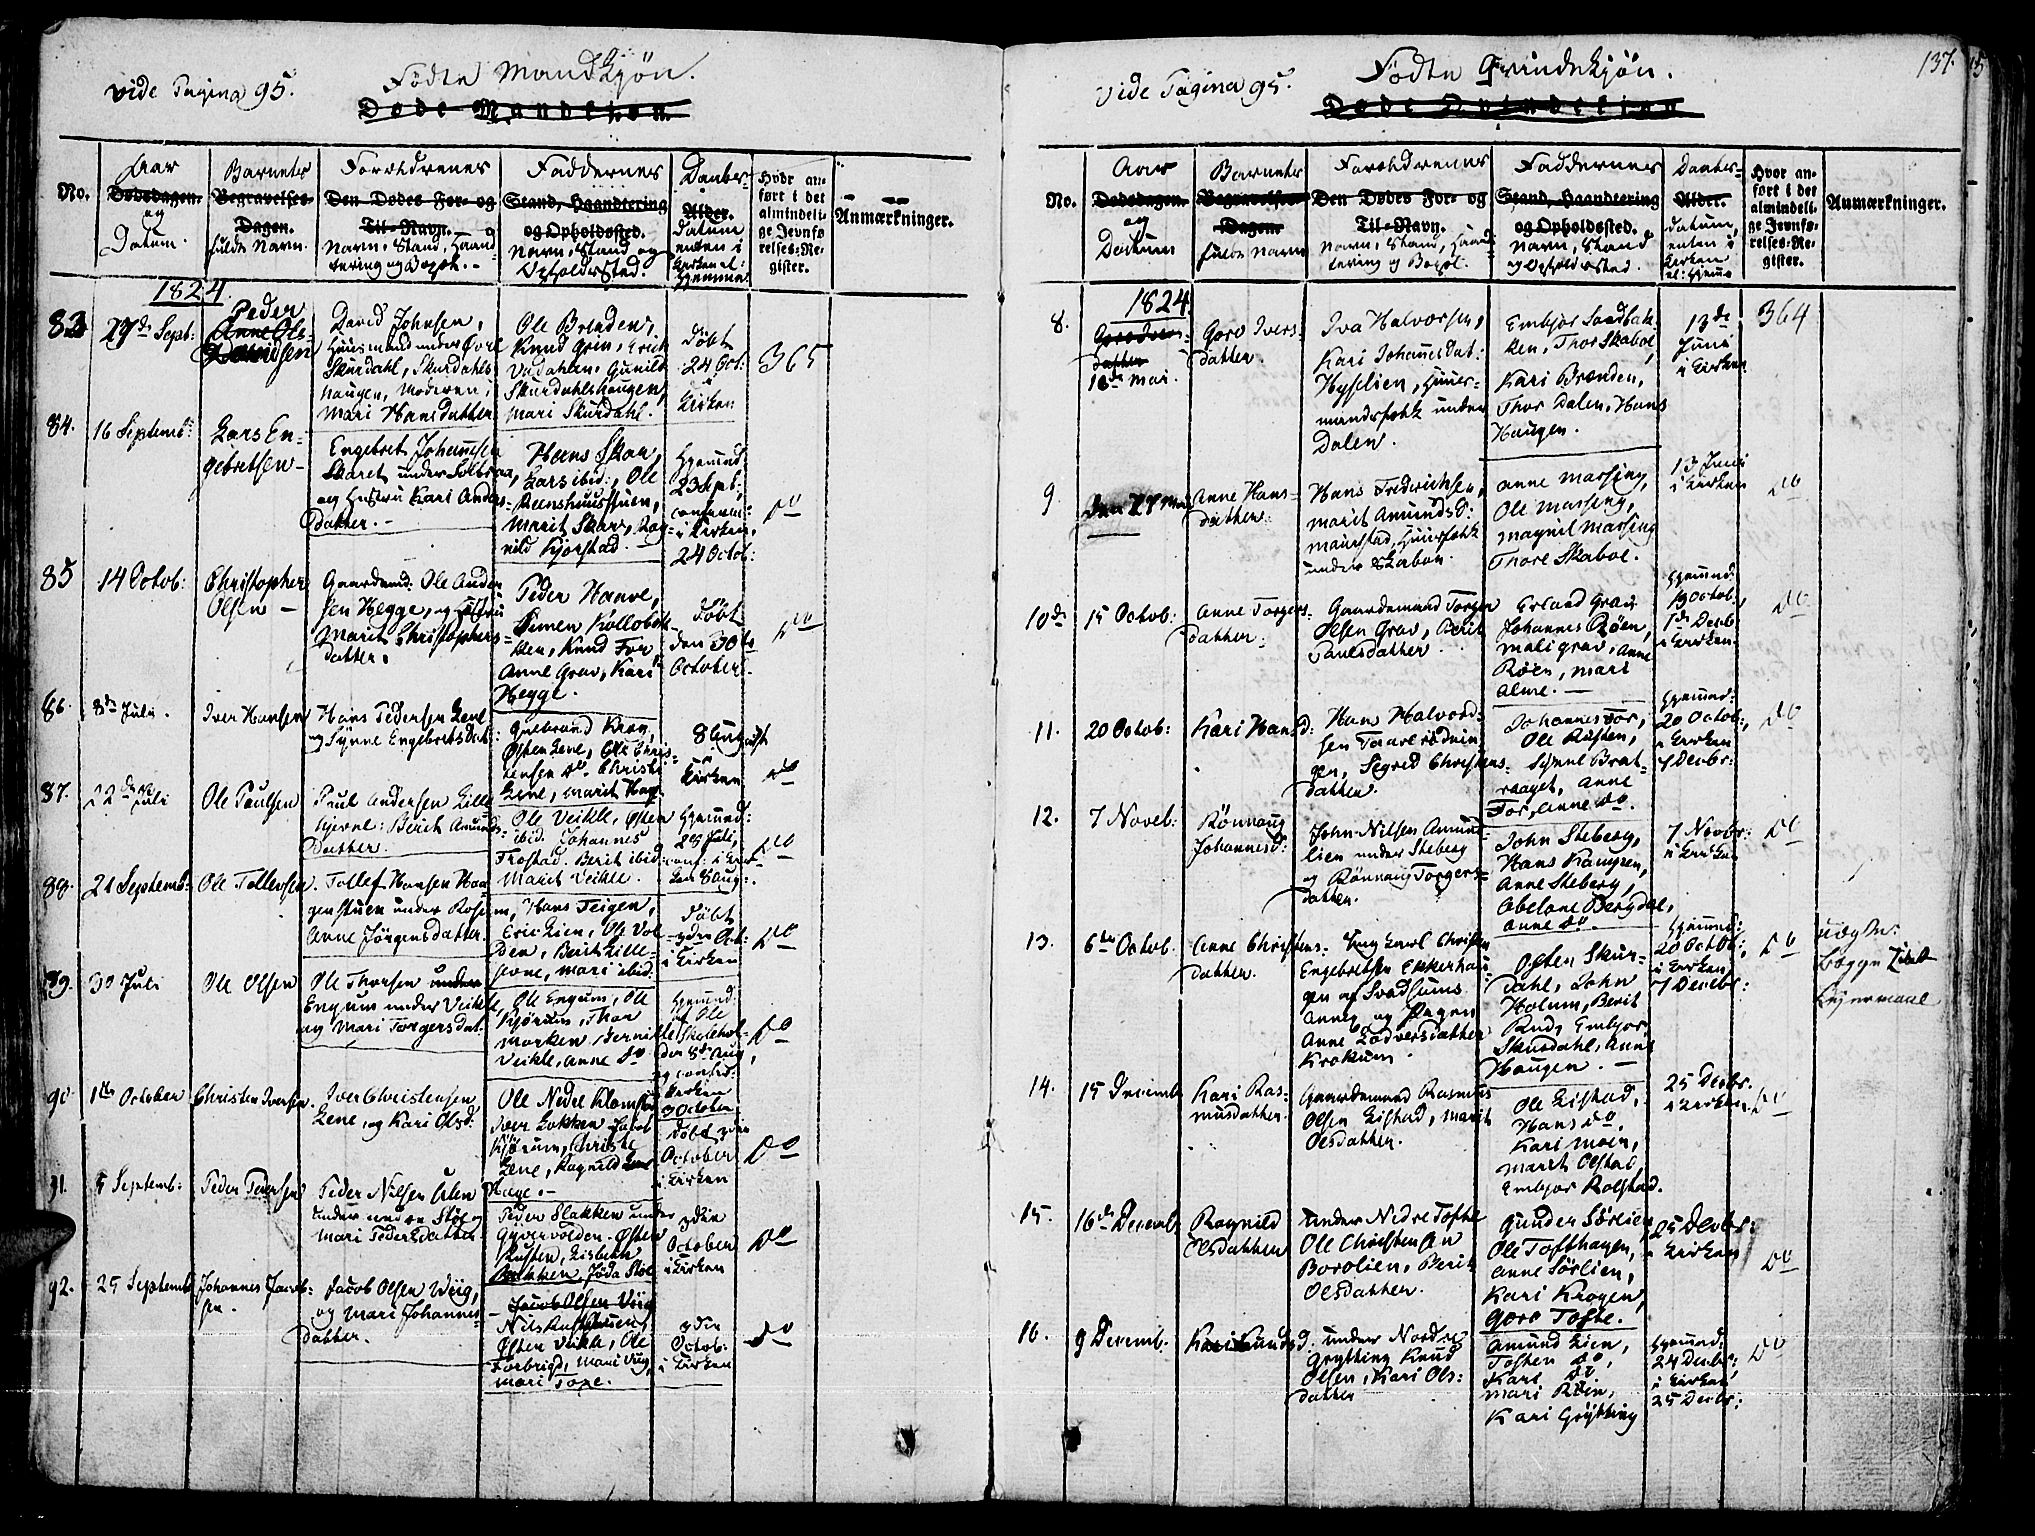 vide Pagina 95.
Fødte Mandkjøn.
Døde Mandkjøn.
No.
Aar
Dødsdagen.
og
Datum.
Barnets
Begravelses-
Dagen.
fulde Navn.
Forældrenes
Den Dødes For- og
Til-Navn.
Navn, Stand, Haand
tering og Bopæl.
Faddernes
Stand, Haandtering
og Opholdssted.
Navn, Stand og
Opholdssted.
Daabs-
Alder.
Datum
enten i
Kirken el:
Hjemme
Hvor an-
ført i det
almindeli-
ge Jevnfø-
relses-Re-
gister.
Anmærkninger.
1824
83
27de Sept:
Peder
Anne Ols-
Davidsen
David Johnsen,
Huusmand under Øvre
Skurdahl, Skurdahls
haugen, Moderen:
Mari Hansdatter
Ole Brenden,
Knud Grin, Erich
Vadahlen, Gunild
Skurdahlshaugen,
Mari Skurdahl.
Døbt
24 Oct:
i
Kirken
365
84.
16 Septemb:
Lars En-
gebretsen
Engebret Johannesen
Skaret under
og Hustru Kari Anders-
datter.
Hans Skar,
Lars ibid:, Ole
Marit Skar, Rag-
nild Kjorstad.
Hjemmed:
23 Sept:
i Kirken
24 Octob:
Do
85
14 Octob:
Christopher
Olsen
Gaardmd: Ole Ander
sen Hegge, og Hustru
Marit Christophers-
datter.
Peder Haave,
Simen Kollobak-
ken, Knud For
Anne Grav, Kari
Hegge.
Døbt
den 30te
October.
Do
86.
8de Juli.
Iver Hansen
Hans Pedersen Lene
og Synne Engebretsdat:
Gulbrand Krog,
Østen Lene, Ole Chris-
tensen Do. Christi
Lene, Marit Hage
8 August
i
Kirken
Do
87.
22de Juli
Ole Paulsen
Paul Andersen Lille
hjerne: Berit Amunds-
datter.
Ole Veikle, Østen
ibid. Johannes
Frostad. Berit ibid:
Marit Veikle.
Hjemmed:
29 Juli,
conf: i Kirk
den 8 Aug:
Do
88.
21 Septemb:
Ole Tollefsen.
Tollef Hansen Hau-
genstuen under Rosum,
Anne Jørgensdatter.
Hans Teigen,
Eric Lien, Ole Vol-
den, Berit Lille-
jevne, Mari ibid.
Døbt
3die Oct:
i Kirken
Do
89.
30 Juli
Ole Olsen
Ole Thorsen under
Engum under Veikle,
og Mari Torgersdat.
Ole Engum, Ole
Kjørum, Thor
Morken, Pernille
Veikle, Anne Do
Hjemmed:
af Ole
Skolehol-
der 8de Aug,
Do
90.
1ste October
Christen Iversen
Iver Christensen
Lene, og Kari Olsd:
Ole Nedre Klomsru
Iver Løkken, Jacob
Kjørum, Christi
Lene, Ragnild Lene
Hage.
Kirken
3 October.
Døbt 3die
October
i Kirken
Do
91.
5 Septemb:
Peder Pedersen
Peder Nilsen Ulen
under nedre Støe og
Mari Pedersdatter
Peder Slakken under
Gyvervolden. Østen
Rusten, Lisbeth
Bakken. Jøda Støe
3die
October
i Kirken
Do
92.
25 Septemb
Johannes Jacob-
sen.
Jacob Olsen Wiig,
og Mari Johannes-
datter.
Jacob Olsen Viig
Nils Rustehuuen,
Østen Veikle, Ole
Forbrigd, Mari Viig,
Mari Toxe.
3die
Octob:
i Kirken
Do
137.
vide Pagina 95.
Fødte Qvindekjøn.
Døde Qvindekjøn
No.
Aar
Dødsdagen.
og
Datum
Barnets
Begravelses-
Dagen
fulde Navn
Forældrenes
Den Dødes For- og
Til-Navn.
Navn, Stand, Haand-
tering og Bopæl.
Faddernes
Stand, Haandtering
og Opholdssted.
Navn, Stand
og Opholdssted.
Daabs-
Alder.
Datum,
enten i
Kirken
el: Hjemme
Hvor an-
ført i det
almindeli-
ge Jevnfø-
relses-Re-
gister.
Anmærkninger.
1824
8.
Goro Ivers-
datter
18de Mai.
Goro Ivers-
datter
Iva Halvorsen,
Kari Johannesdat:
Hyslien, Huus-
mandsfolk under
Dalen.
Embjør Sandbak-
ken, Thor Skaboe,
Kari Brenden,
Thor Dalen, Hans
Haugen.
13de
Juni
i Kirken
364
9
den 27 Mai
Anne Hans-
datter.
Hans Frederichsen,
Marit Amunds D:
under Skaboe
Anne Massing,
Ole Massing,
Magnil Massing
Thore Skaboe.
13 Juni
i Kirken
Do
10de
15 Octob:
Anne Torgers-
datter.
Gaardmand Torger
Olsen Grav, Berit
Paulsdatter.
Erland Grav
Johannes Røen,
Mali Grav, Anne
Røen, Mari
Alme.
Hjemmed:
19 Octob:,
1ste Decb
i Kirken.
Do
11.
20 Octob:
Kari Hansd:
Hans Halvord-
sen Taarrudvin-
gen, Segred Christens-
datter.
Johannes For,
Ole Rusten,
Synne Brat-
raaget, Anne
For, Anne Do.
Hjemmed:
20 Octob:,
i Kirken
7 Decbr:
Do
12.
7 Noveb:
Rønnaug
Johannesd:
John Nilsen Amund-
lien under Steberg
og Rønnaug Torgers-
datter.
John Steberg,
Hans Kampen,
Anne Steberg,
Abelone Bergdal,
Anne Do.
7 Novbr:
i Kirken
Do
13.
6te Octob.
Anne Christens-
datter.
Ung Karl Christen
Engebretsen Ekkerhau-
gen af Svadsums
Annex og Pigen
Anne Lodversdatter
Krokum.
Østen Skur-
dahl, John
Holum, Berit
Rud, Embjør
Skurdahl, Anne
Haugen.
Hjemmed:
20 Octob:,
i Kirken
7 Decbr:
Do
uægte.
begge 1ste
Leiermaal
14.
15 Decemb
Kari Ras-
musdatter.
Gaardmand Rasmus
Olsen Listad, Marit
Olsdatter.
Ole Listad,
Hans Do,
Kari Moen,
Marit Olstad,
Embjør Rolstad.
25 Decbr.
i Kirken.
Do
15.
16de Decemb
Ragnild
Olsdatter
under Nedre Tofte
Ole Christensen
Borolien, Berit
Olsdatter.
Gunder Sørlien,
Ole Tofthagen,
Anne Sørlien,
Kari Krogen,
Goro Tofte.
25 Decbr:
i Kirken
Do
16.
9 Decemb.
Kari Knudsd.
under Nordre
Grytting Knud
Olsen, Kari Ols-
datter
Amund Lien,
Tosten Do,
Kari Do
Mari Røen,
Kari Grytting
Hjemmed:
24 Decbr,
i Kirken
25 Decbr:
Do